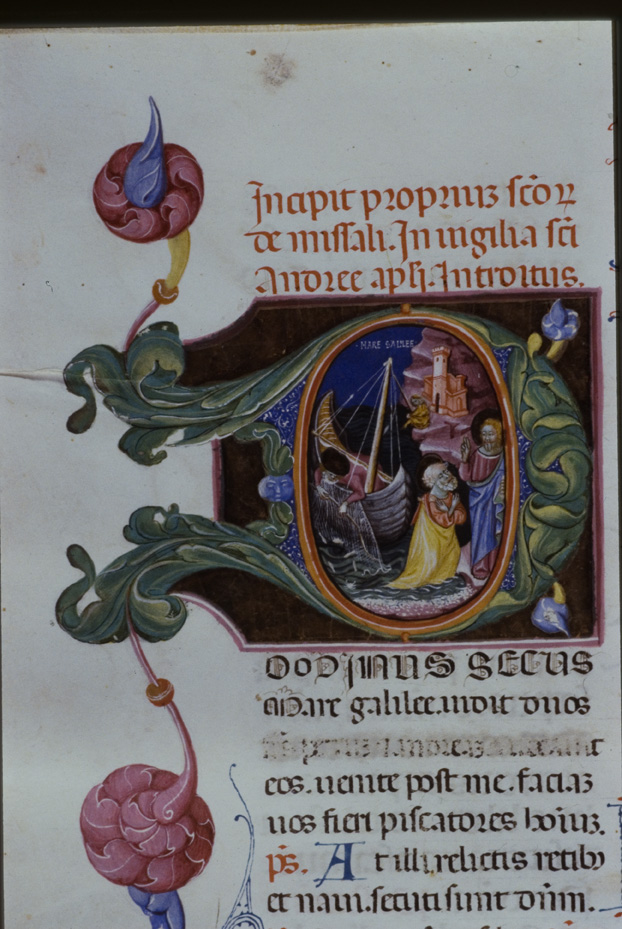 Incipit propriuz sco℞
de missali. In uigilia sci
Andree apli. Introitus.
MARE GALILEE
DODJINUS SECUS
Mare galilee. uidit duos
eos. uenite post me. faciaz
uos fieri piscatores hoiuz.
ps. At illi, relictis retib3
et naui. secuti sunt dnm.